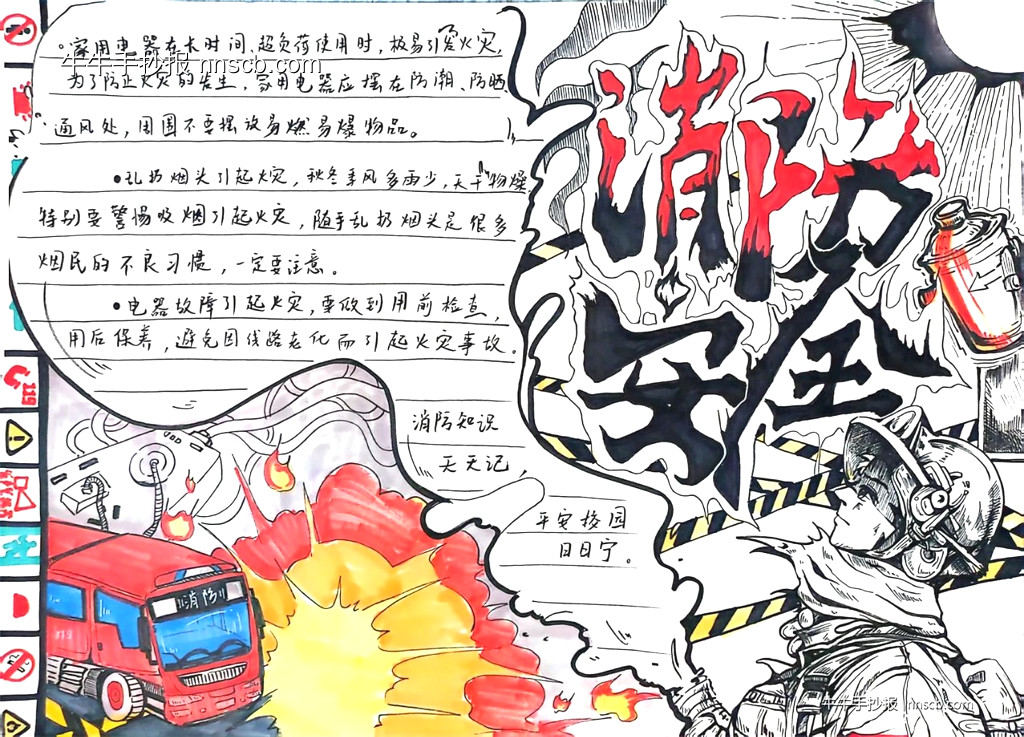 家用电器在长时间、超负荷使用时，极易引发火灾，
牛牛手抄报 nnscb.com
为了防止火灾的发生，家用电器应摆在防潮、防晒、
通风处，周围不要摆放易燃易爆物品。
•乱扔烟头引起火灾，秋冬季风多雨少，天干物燥，
特别要警惕吸烟引起火灾，随手乱扔烟头是很多
烟民的不良习惯，一定要注意。
•电器故障引起火灾，要做到用前检查，
用后保养，避免因线路老化而引起火灾事故。
消防知识
天天记，
平安校园
日日宁。
消防
安全
119
消防
牛牛手抄报 nnscb.com